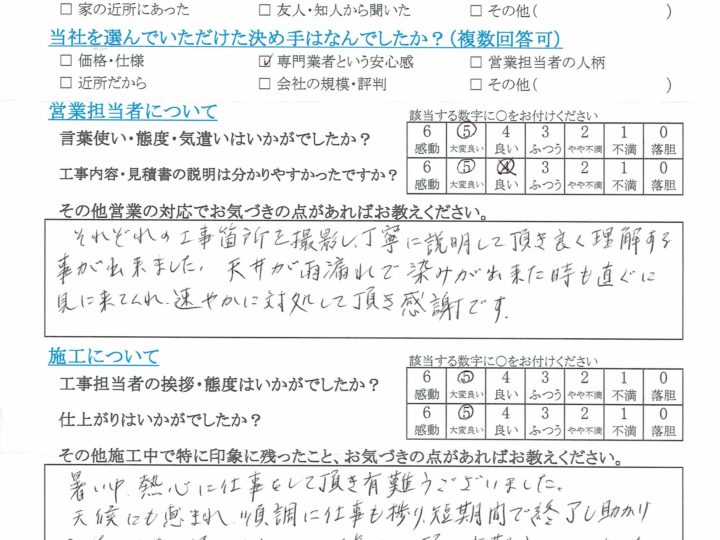 □ 家の近所にあった　□ 友人・知人から聞いた　□ その他(　　　)
当社を選んでいただけた決め手はなんでしたか？(複数回答可)
□ 価格・仕様　☑ 専門業者という安心感　□ 営業担当者の人柄
□ 近所だから　□ 会社の規模・評判　□ その他(　　　)
営業担当者について
該当する数字に○をお付けください
言葉使い・態度・気遣いはいかがでしたか？
6 ⑤ 4 3 2 1 0
感動 大変良い 良い ふつう やや不満 不満 落胆
工事内容・見積書の説明は分かりやすかったですか？
6 ⑤ 4 3 2 1 0
感動 大変良い 良い ふつう やや不満 不満 落胆
その他営業の対応でお気づきの点があればお教えください。
それぞれの工事箇所を撮影し、丁寧に説明して頂き良く理解する
事が出来ました。天井が雨漏れで染みが出来た時も直ぐに
見に来てくれ、速やかに対処して頂き感謝です。
施工について
該当する数字に○をお付けください
工事担当者の挨拶・態度はいかがでしたか？
6 ⑤ 4 3 2 1 0
感動 大変良い 良い ふつう やや不満 不満 落胆
仕上がりはいかがでしたか？
6 ⑤ 4 3 2 1 0
感動 大変良い 良い ふつう やや不満 不満 落胆
その他施工中で特に印象に残ったこと、お気づきの点があればお教えください。
暑い中、熱心に仕事をして頂き有難うございました。
天候にも恵まれ、順調に仕事も捗り、短期間で終了し助かり